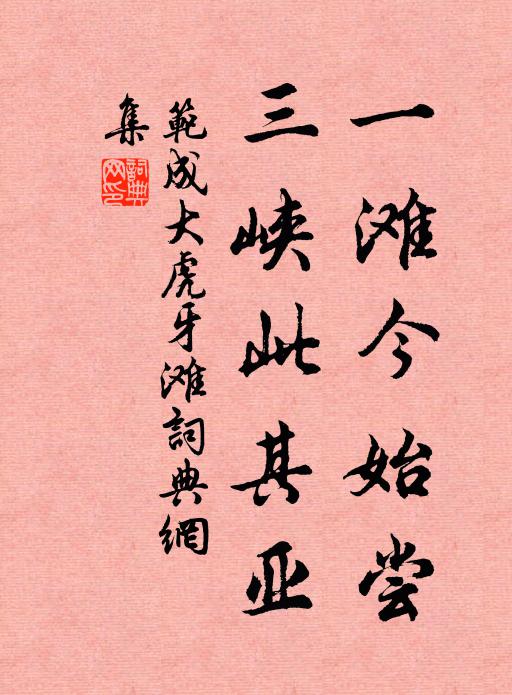 一滩今始尝
三峡此其亚
範成大虎牙滩詞典網
集
詞典
网印